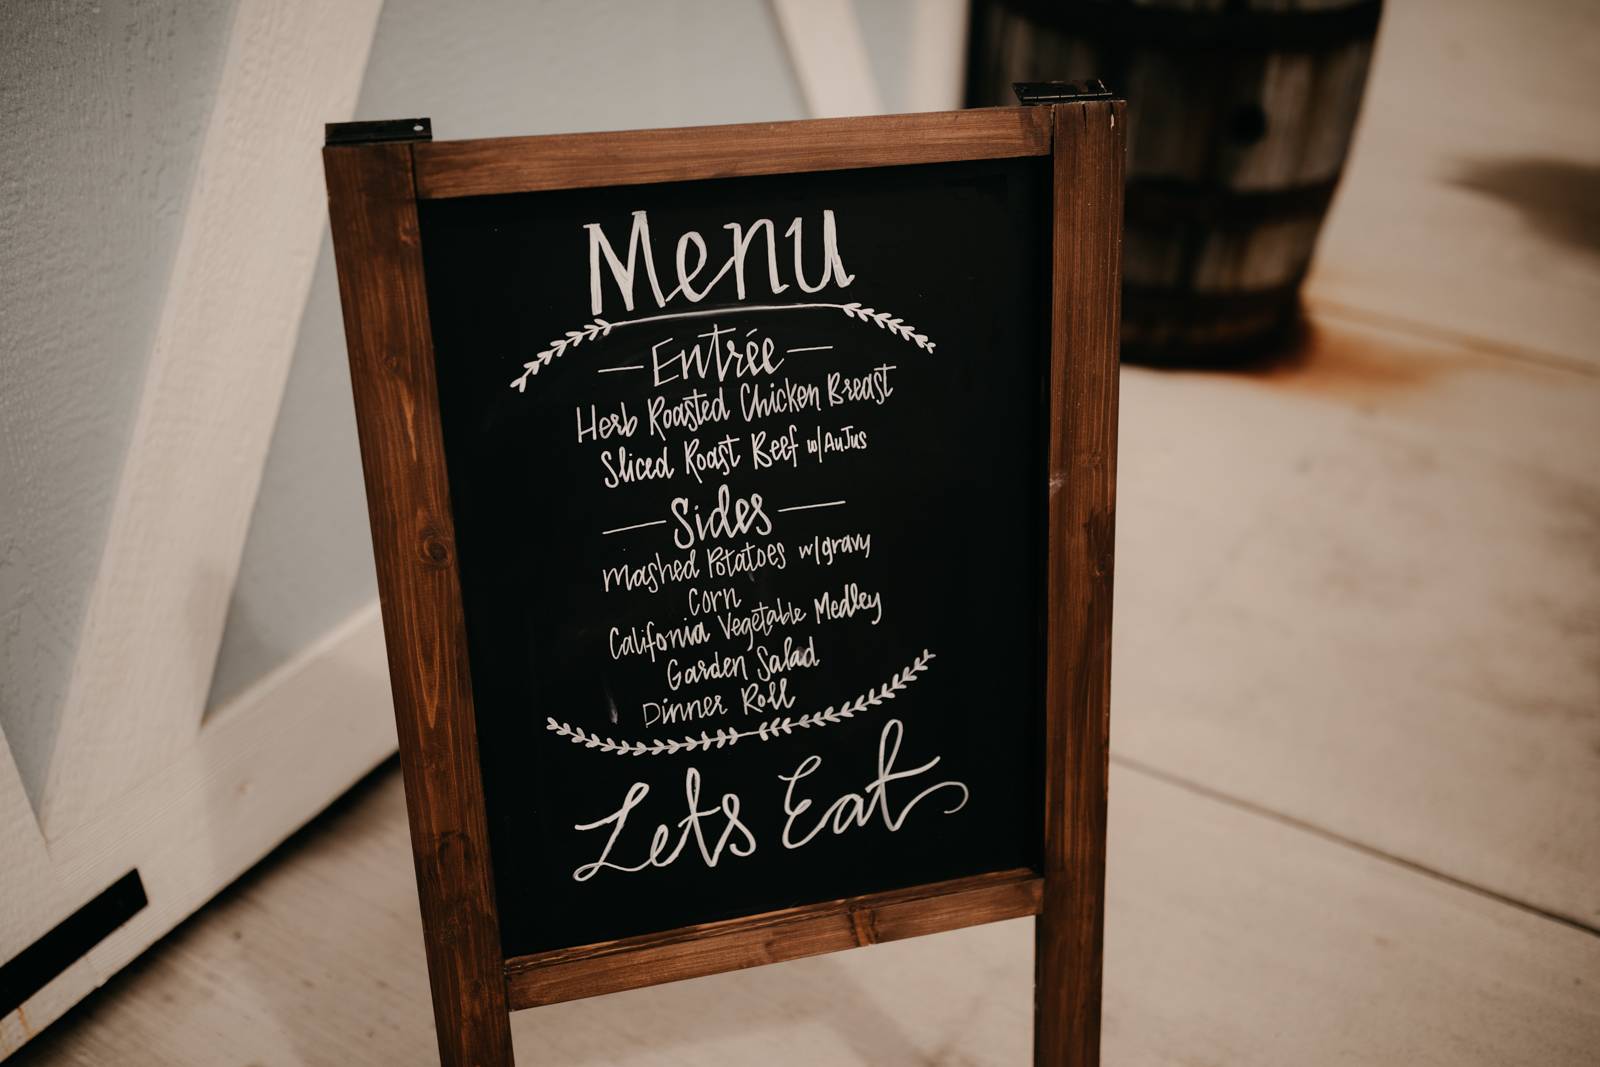 Menu
Entrée
Herb Roasted Chicken Breast
Sliced Roast Beef w/AuJus
Sides
Mashed Potatoes w/gravy
Corn
California Vegetable Medley
Garden Salad
Dinner Roll
Lets Eat